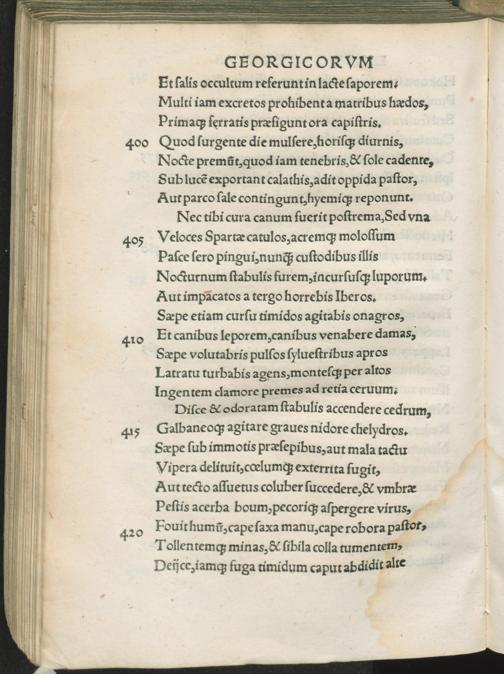 GEORGICORVM
Et salis occultum referunt in lacte saporem.
Multi iam excretos prohibent a matribus hædos,
Primaq; ferratis præfigunt ora capistris.
400 Quod surgente die mulsere, horisq; diurnis,
Nocte premūt, quod iam tenebris, & sole cadente,
Sub lucē exportant calathis, adit oppida pastor,
Aut parco sale contingunt, hyemiq; reponunt.
Nec tibi cura canum fuerit postrema, Sed vna
405 Veloces Spartæ catulos, acremq; molossum
Pasce sero pingui, nunq̄ custodibus illis
Nocturnum stabulis furem, incursusq; luporum.
Aut impacatos a tergo horrebis Iberos.
Sæpe etiam cursu timidos agitabis onagros,
410 Et canibus leporem, canibus venabere damas,
Sæpe volutabris pulsos syluestribus apros
Latratu turbabis agens, montesq; per altos
Ingentem clamore premes ad retia ceruum.
Disce & odoratam stabulis accendere cedrum,
415 Galbaneoq; agitare graues nidore chelydros.
Sæpe sub immotis præsepibus, aut mala tactu
Vipera delituit, cœlumq; exterrita fugit,
Aut tecto assuetus coluber succedere, & vmbræ
Pestis acerba boum, pecoriq; aspergere virus,
420 Fouit humū, cape saxa manu, cape robora pastor,
Tollentemq; minas, & sibila colla tumentem,
Deijce, iamq; fuga timidum caput abdidit alte